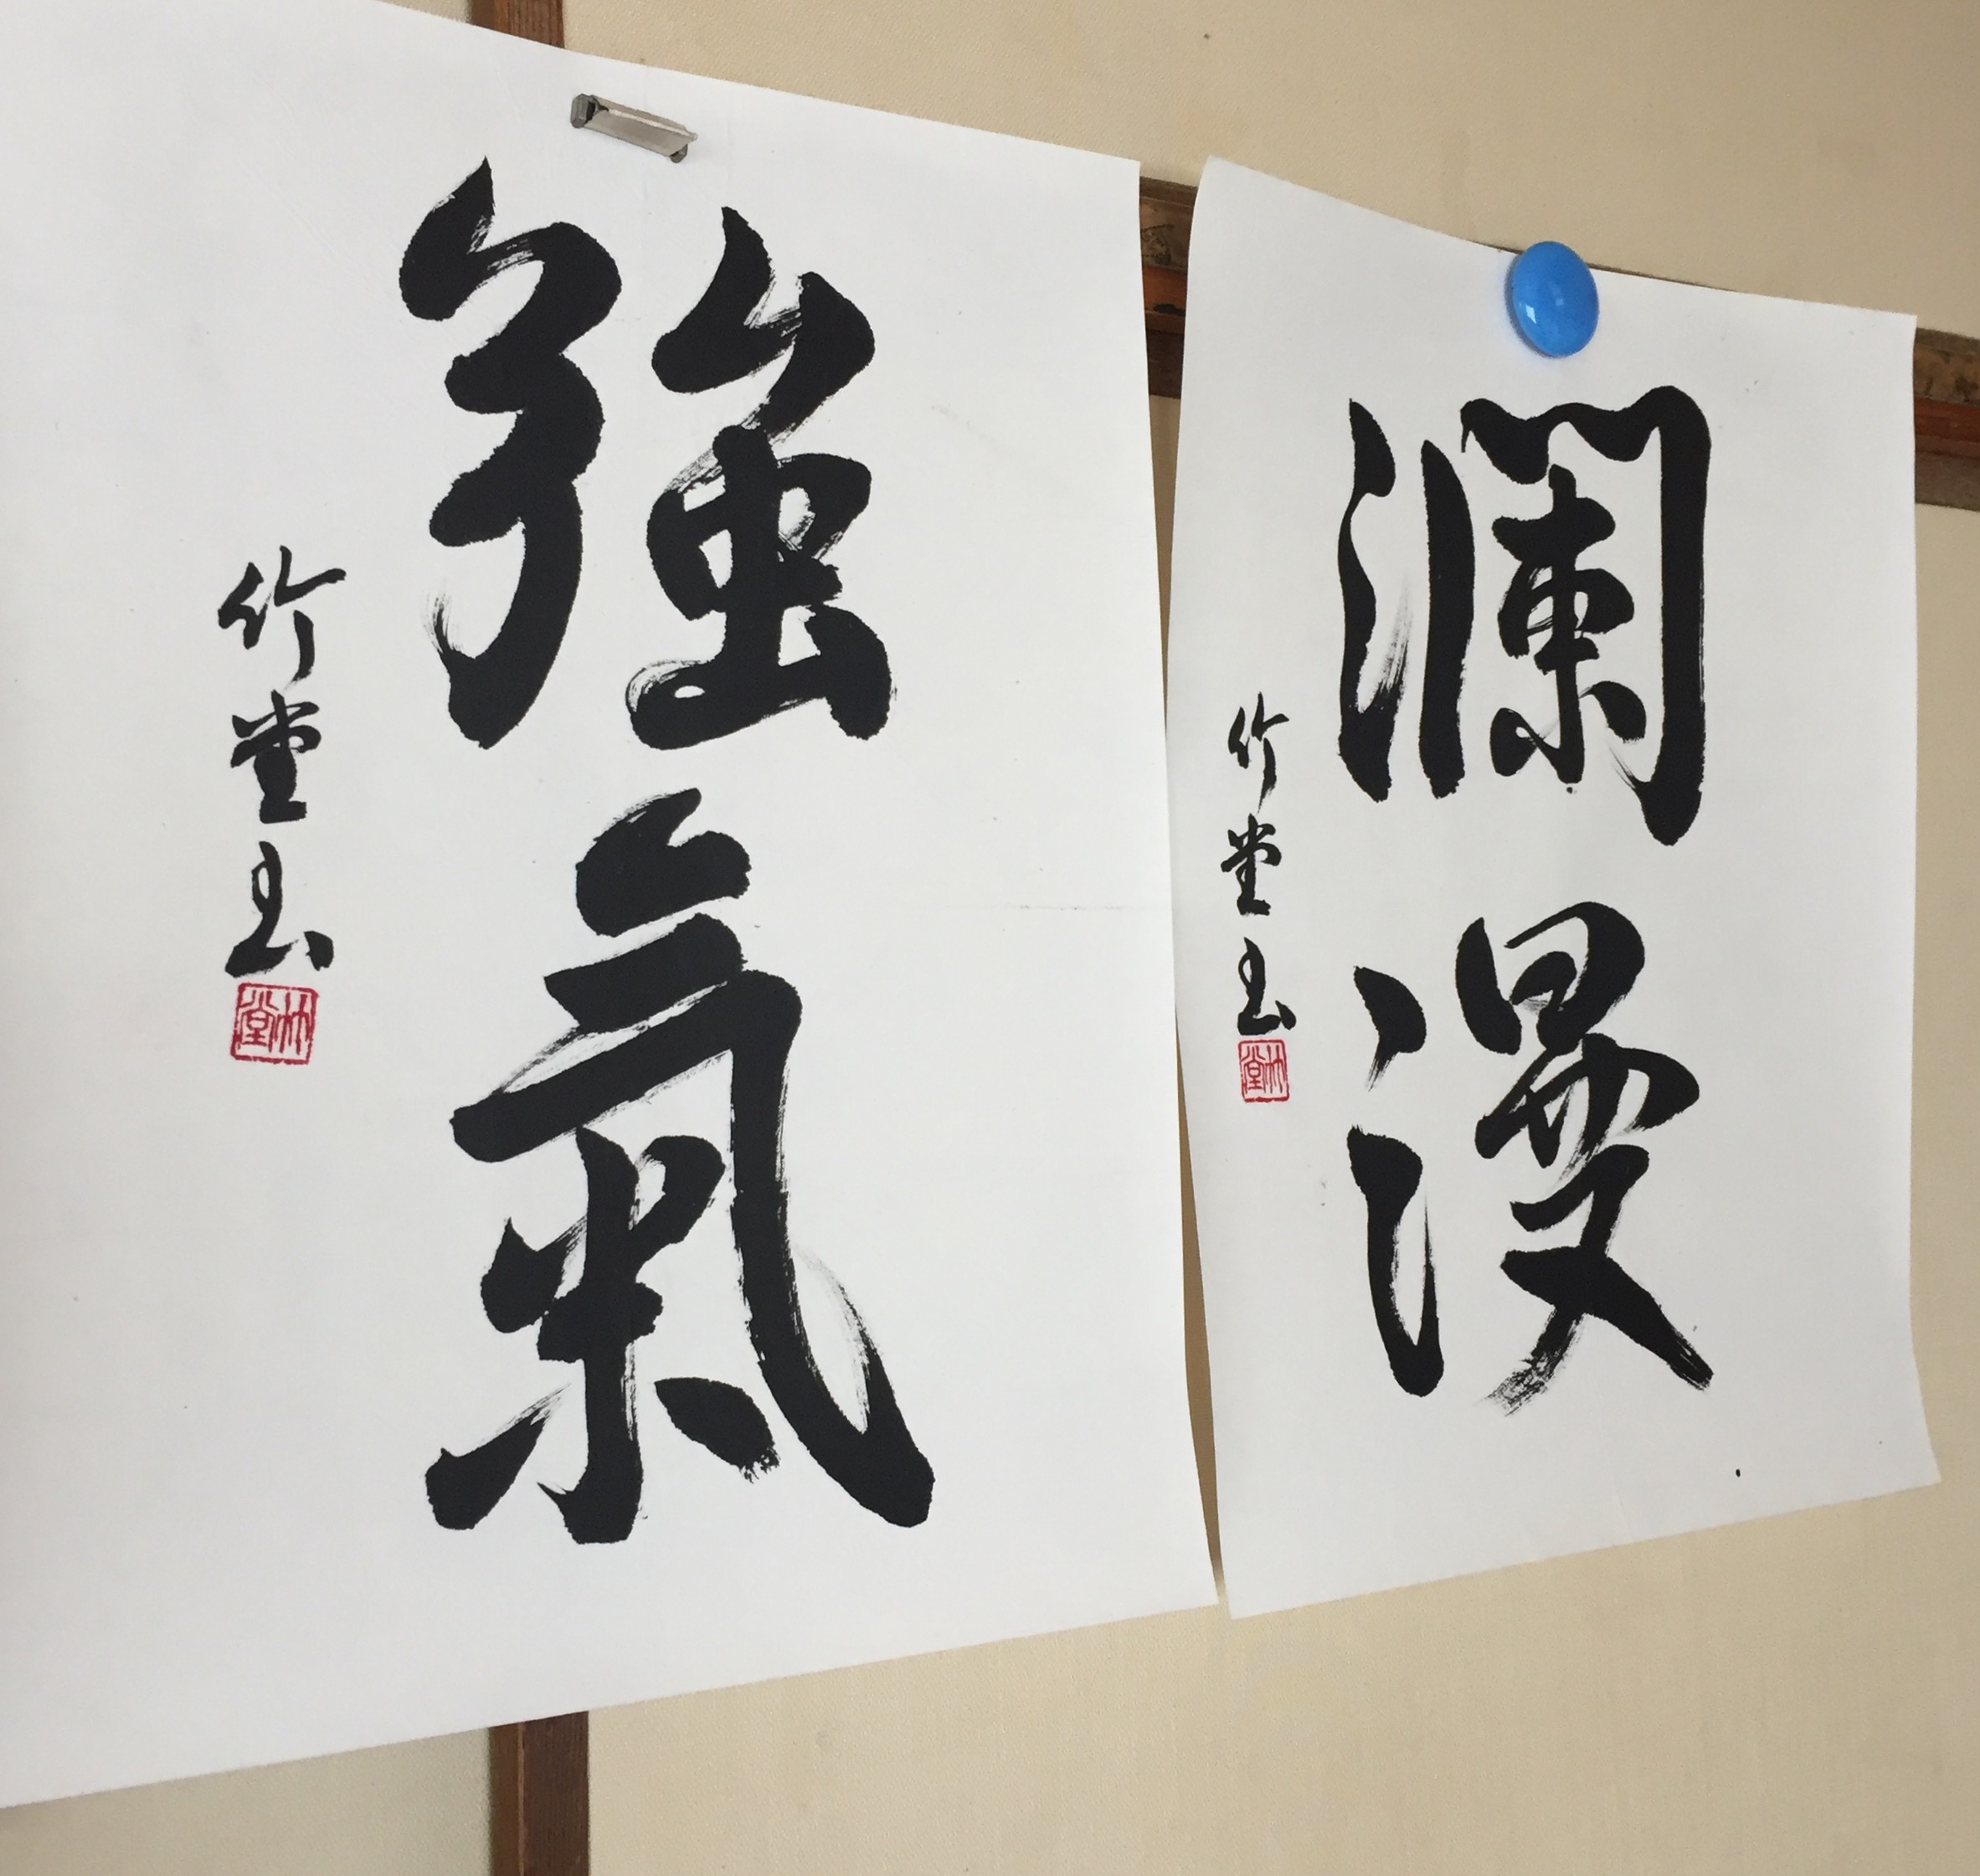 強氣
竹堂玉
竹堂
瀾漫
竹堂玉
竹堂